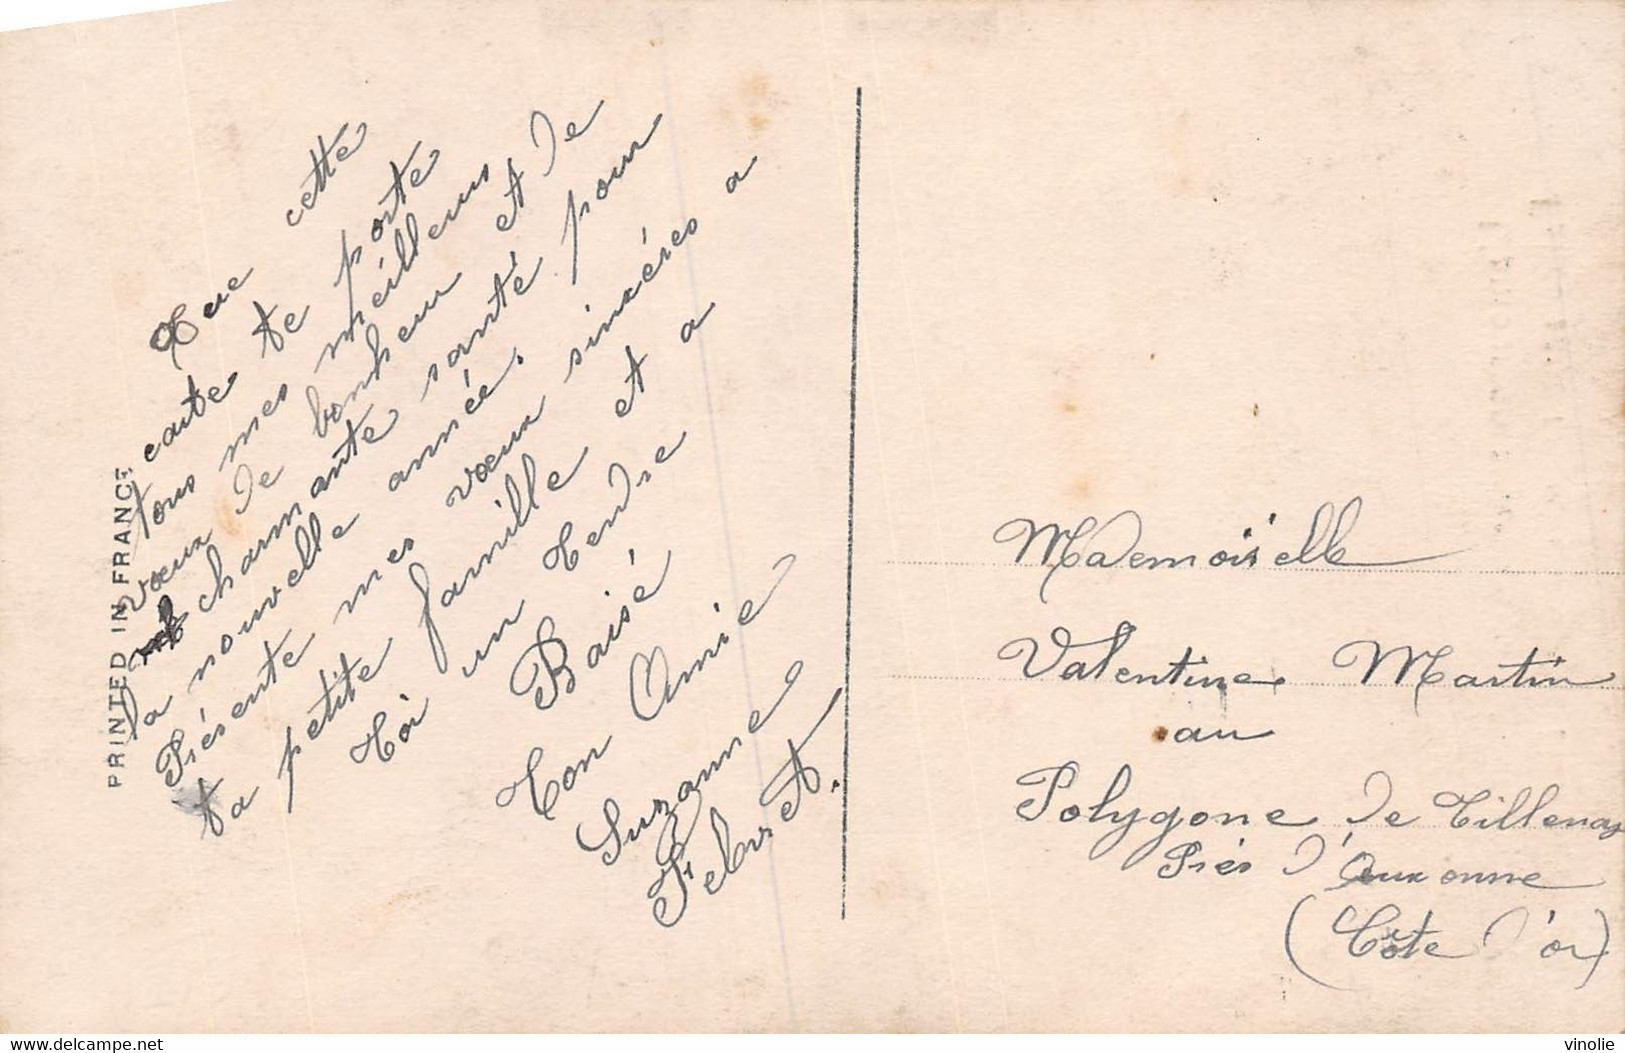 Que cette
carte te porte
tous mes meilleurs
vœux de bonheur et de
charmante santé pour
la nouvelle année.
Présente mes vœux sincéres a
ta petite famille et a
Toi un Tendre
Baisé
Ton Amie
Suzanne
PRINTED IN FRANCE
Mademoiselle
Valentine Martin
au
Polygone de Tillenay
Prés d'Auxonne
(Côte d'or)
www.delcampe.net
vinolie